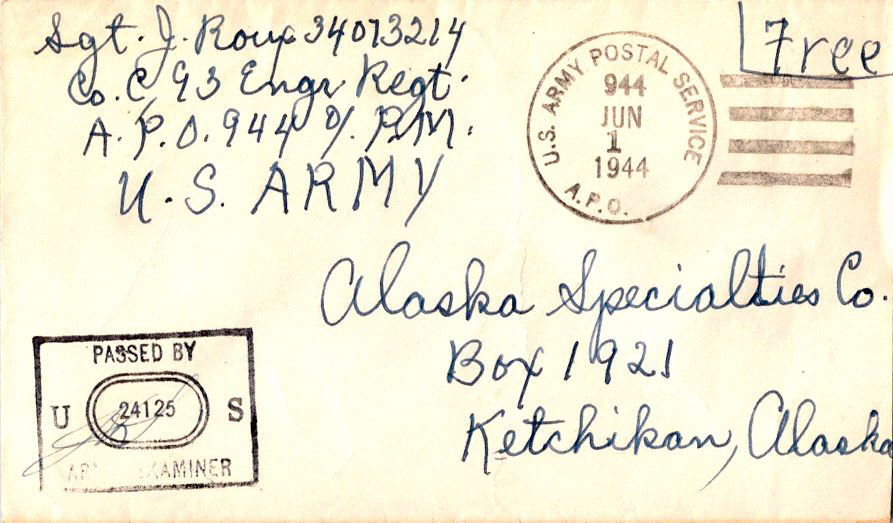 Sgt. J. Roux 34073214
Co. C, 93 Engr Regt.
A.P.O. 944 c/o P.M.
U.S. ARMY
Free
U.S. ARMY POSTAL SERVICE
944
JUN
1
1944
A.P.O.
Alaska Specialties Co.
Box 1921
Ketchikan, Alaska
PASSED BY
U 24125 S
EXAMINER